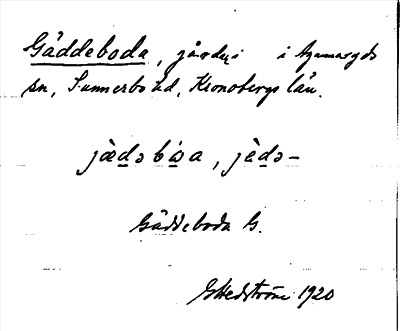 Gäddeboda, gårdn i Agunnaryds
sn, Sunnerbo hd, Kronobergs län.
jæ̀dəbo̱a, jèdə-
Gäddeboda G.
G Hedström 1920